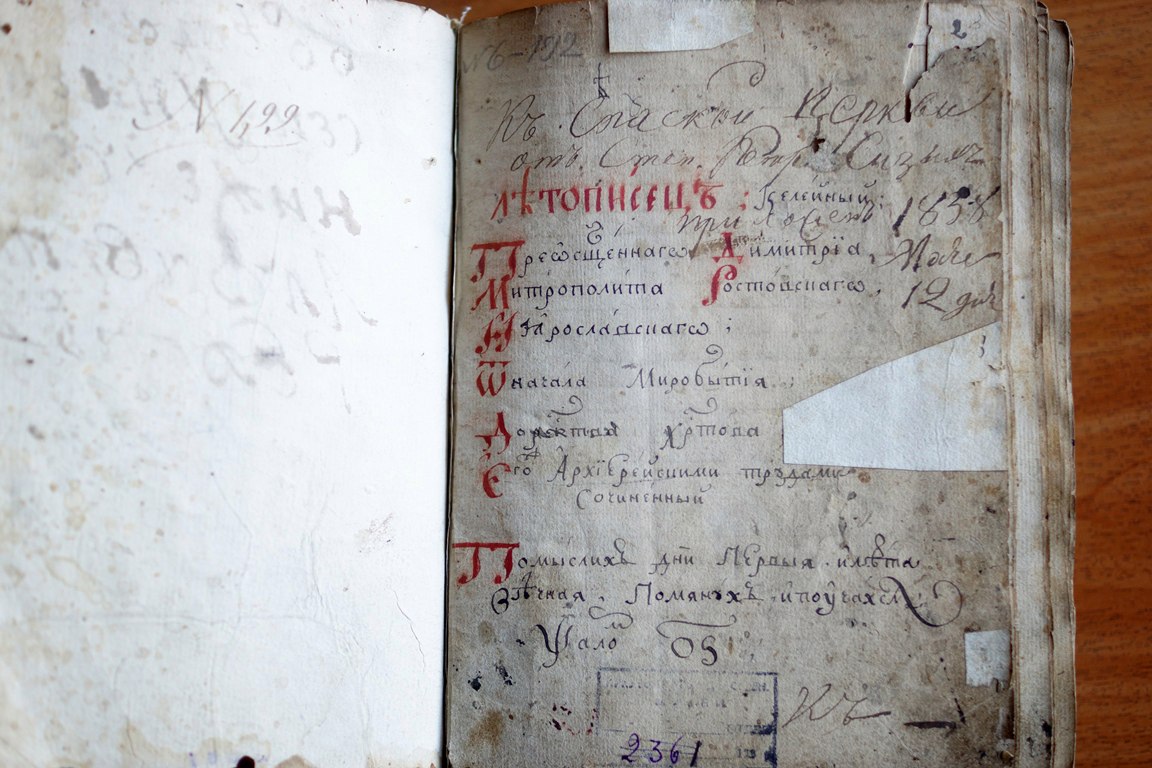 N 1,99
2
Къ Спаской Церкви
отъ Степ. Петр.
лѣтописецъ : Келейный :
приложенъ 1858
Преѡсщеннагѡ Димитрїа
Маія
Митрополита Ростовскагѡ,
12 дня
И Ꙗрославскагѡ ;
Ѿначала Миробытїя ;
До ржтва хртова
Егѡ Архїерейскими трꙋдами
Сочиненный
Помыслихъ дни Первыя илѣта
вѣчная, Помянꙋхъ ипоꙋчахсѧ
Ѱалом ѯ҃ѕ
Къ
2361